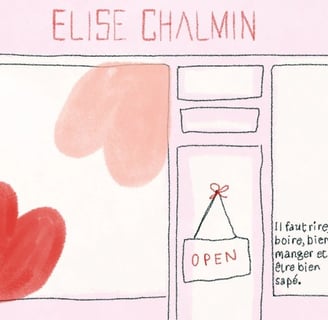 ELISE CHALMIN
OPEN
Il faut rire,
boire, bien
manger et
être bien
sapé.